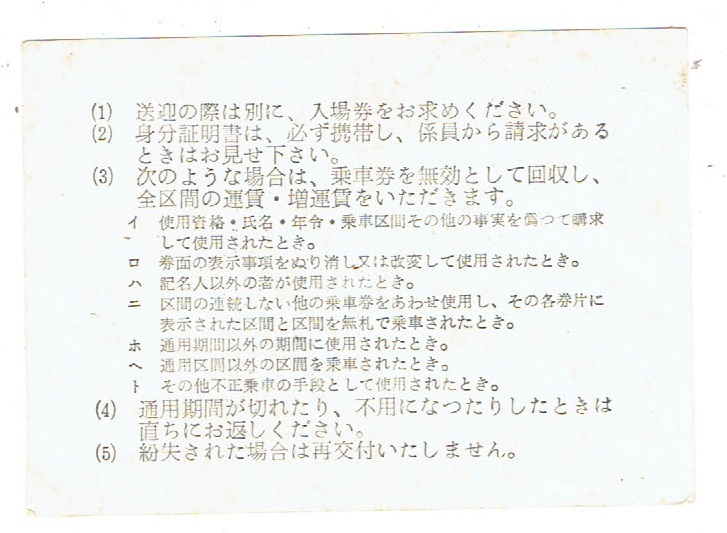 (1) 送迎の際は別に、入場券をお求めください。
(2) 身分証明書は、必ず携帯し、係員から請求がある
ときはお見せ下さい。
(3) 次のような場合は、乗車券を無効として回収し、
全区間の運賃・増運賃をいただきます。
イ 使用資格・氏名・年令・乗車区間その他の事実を偽つて購求
して使用されたとき。
ロ 券面の表示事項をぬり消し又は改変して使用されたとき。
ハ 記名人以外の者が使用されたとき。
ニ 区間の連続しない他の乗車券をあわせ使用し、その各券片に
表示された区間と区間を無札で乗車されたとき。
ホ 通用期間以外の期間に使用されたとき。
ヘ 通用区間以外の区間を乗車されたとき。
ト その他不正乗車の手段として使用されたとき。
(4) 通用期間が切れたり、不用になつたりしたときは
直ちにお返しください。
(5) 紛失された場合は再交付いたしません。